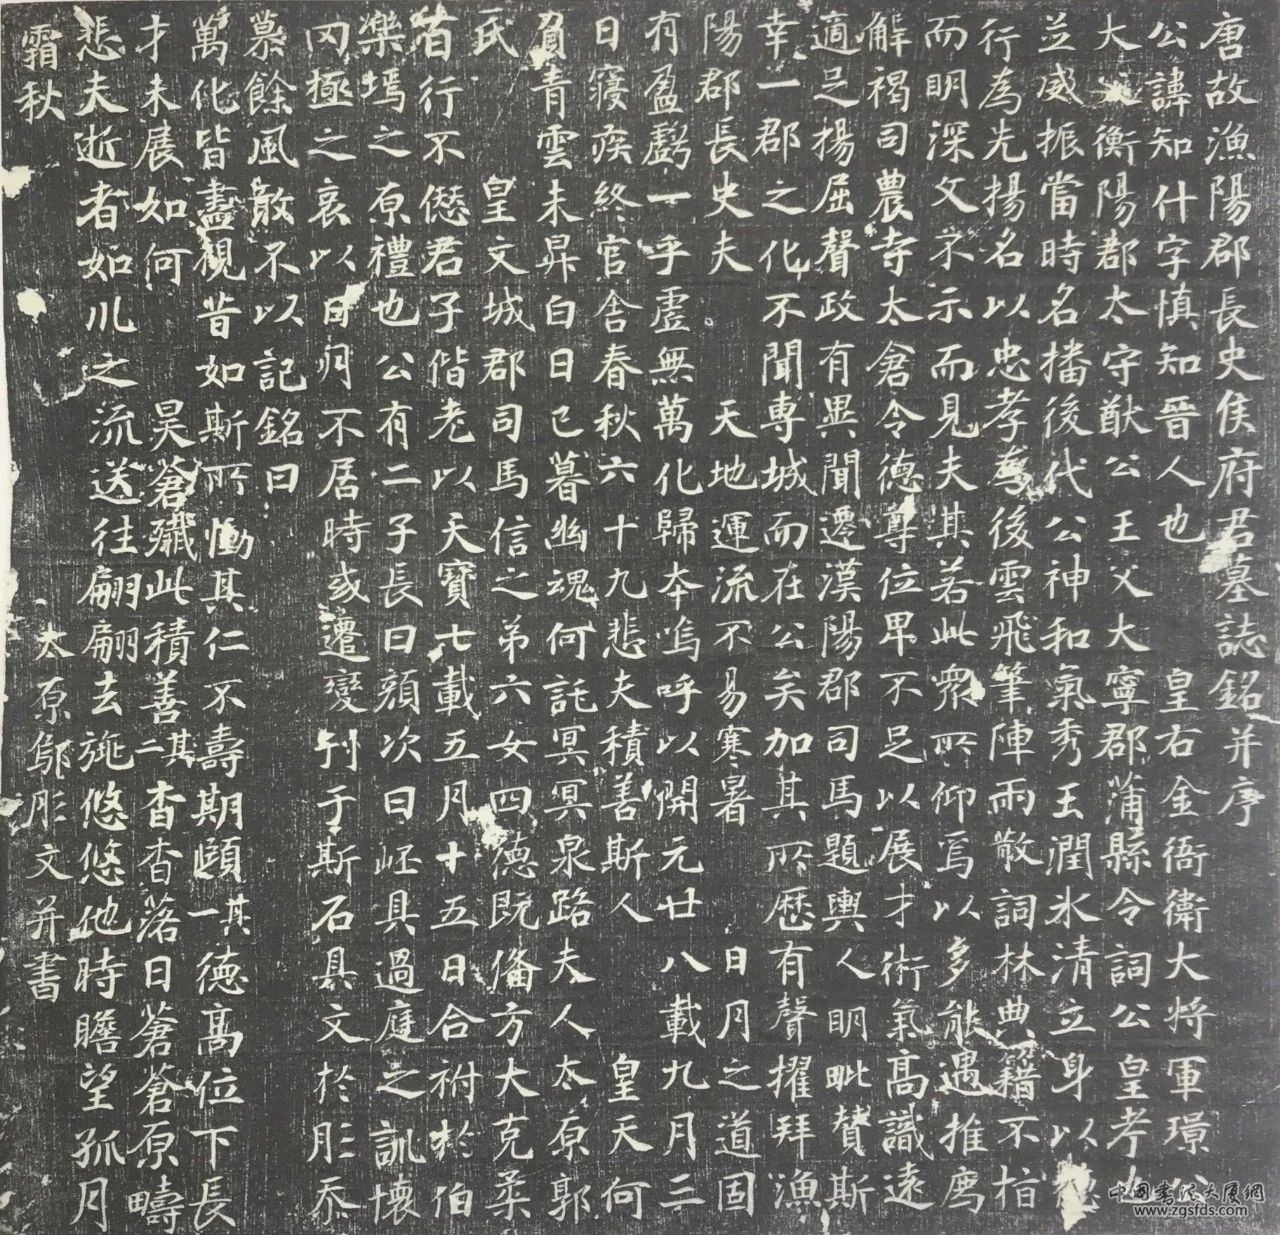 唐故漁陽郡長史侯府君墓誌銘并序
公諱知什字慎知晉人也 皇右金吾衛大將軍璟
大父衡陽郡太守猷公王父大寧郡蒲縣令詞公皇考
並威振當時名播後代公神和氣秀玉潤冰清立身以德
行為先揚名以忠孝為後雲飛筆陣雨散詞林典籍不
而明深文不示而見夫其若此眾所仰焉以多能遇推廌
解褐司農寺太倉令德尊位卑不足以展才術氣高識遠
適足揚屈聲政有異聞遷漢陽郡司馬題輿人明毗贊斯
幸一郡之化不聞專城而在公矣加其所歷有聲擢拜漁
陽郡長史夫 天地運流不易寒暑 日月之道固
有盈虧一乎虛無萬化歸本嗚呼以開元廿八載九月三
日寢疾終官舍春秋六十九悲夫積善斯人 皇天何
負青雲未昇白日已暮幽魂何託冥冥泉路夫人太原郭
氏 皇文城郡司馬信之弟六女四德既備方大克柔
苔行不僁君子偕老以天寶七載五月十五日合祔於伯
樂塢之原禮也公有二子長曰顏次曰岯具過庭之訓懷
罔極之哀以日月不居時或遷變刊于斯石具文於彤忝
慕餘風敢不以記銘曰
萬化皆盡視昔如斯所慟其仁不壽期頤其一德高位下長
才未展如何 昊蒼殲此積善其二杳杳落日蒼蒼原疇
悲夫逝者如川之流送往翩翩去旐悠悠他時瞻望孤月
霜秋 太原鄔彤文并書
中國書法大展網
www.zgsfds.com